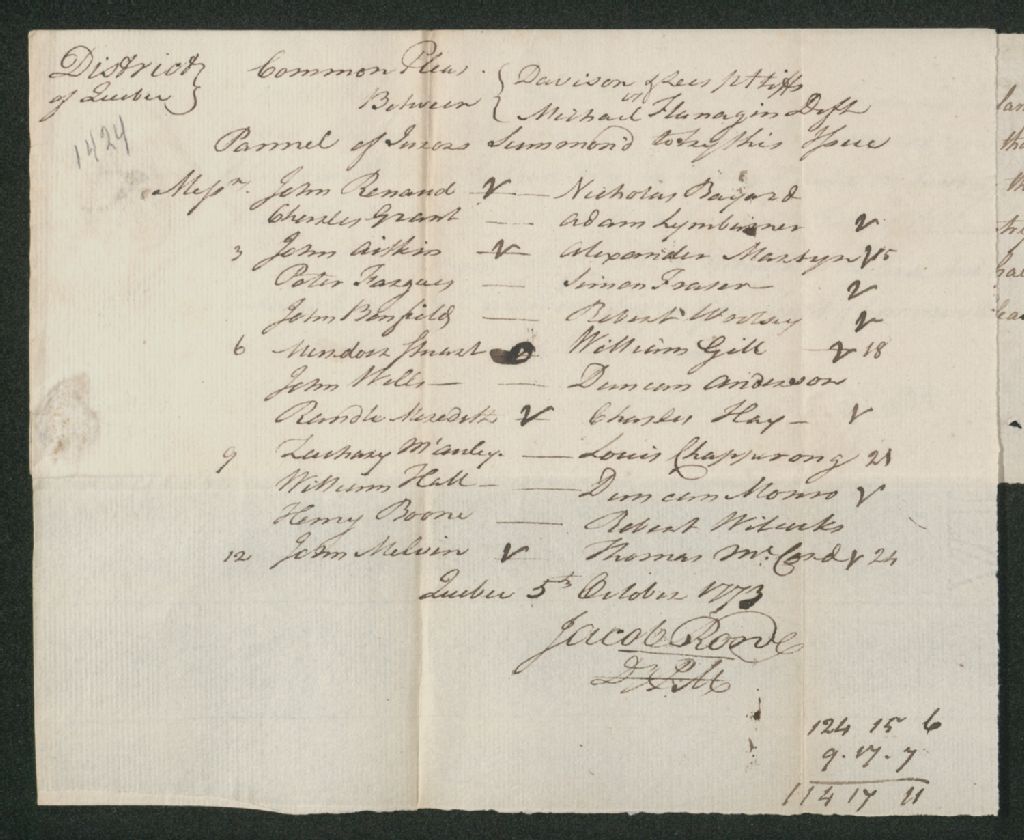 District } Common Pleas { Davison & Lees pltiffs
of Quebec } Between { vs
Michael Flanagin Deft
1424
Pannel of Jurors Summon'd to try this Issue
Messrs. John Renaud V — Nicholas Bayard
Charles Grant — Adam Lymburner V
3 John Aitkin V — Alexander Martyn V 15
Peter Fargues — Simon Fraser V
John Bonfield — Robert Woolsey V
6 Stuart William Gill V 18
John Wells — Duncan Anderson
Randle Meredith V Charles Hay — V
9 Zachary McAuley — Louis 21
William Hall — Duncan Monro V
Henry Boone — Robert Wilcocks
12 John Melvin V Thomas McCord V 24
Quebec 5th October 1773
Jacob Rowe
DyPM
124 15 6
9.17.7
114 17 11